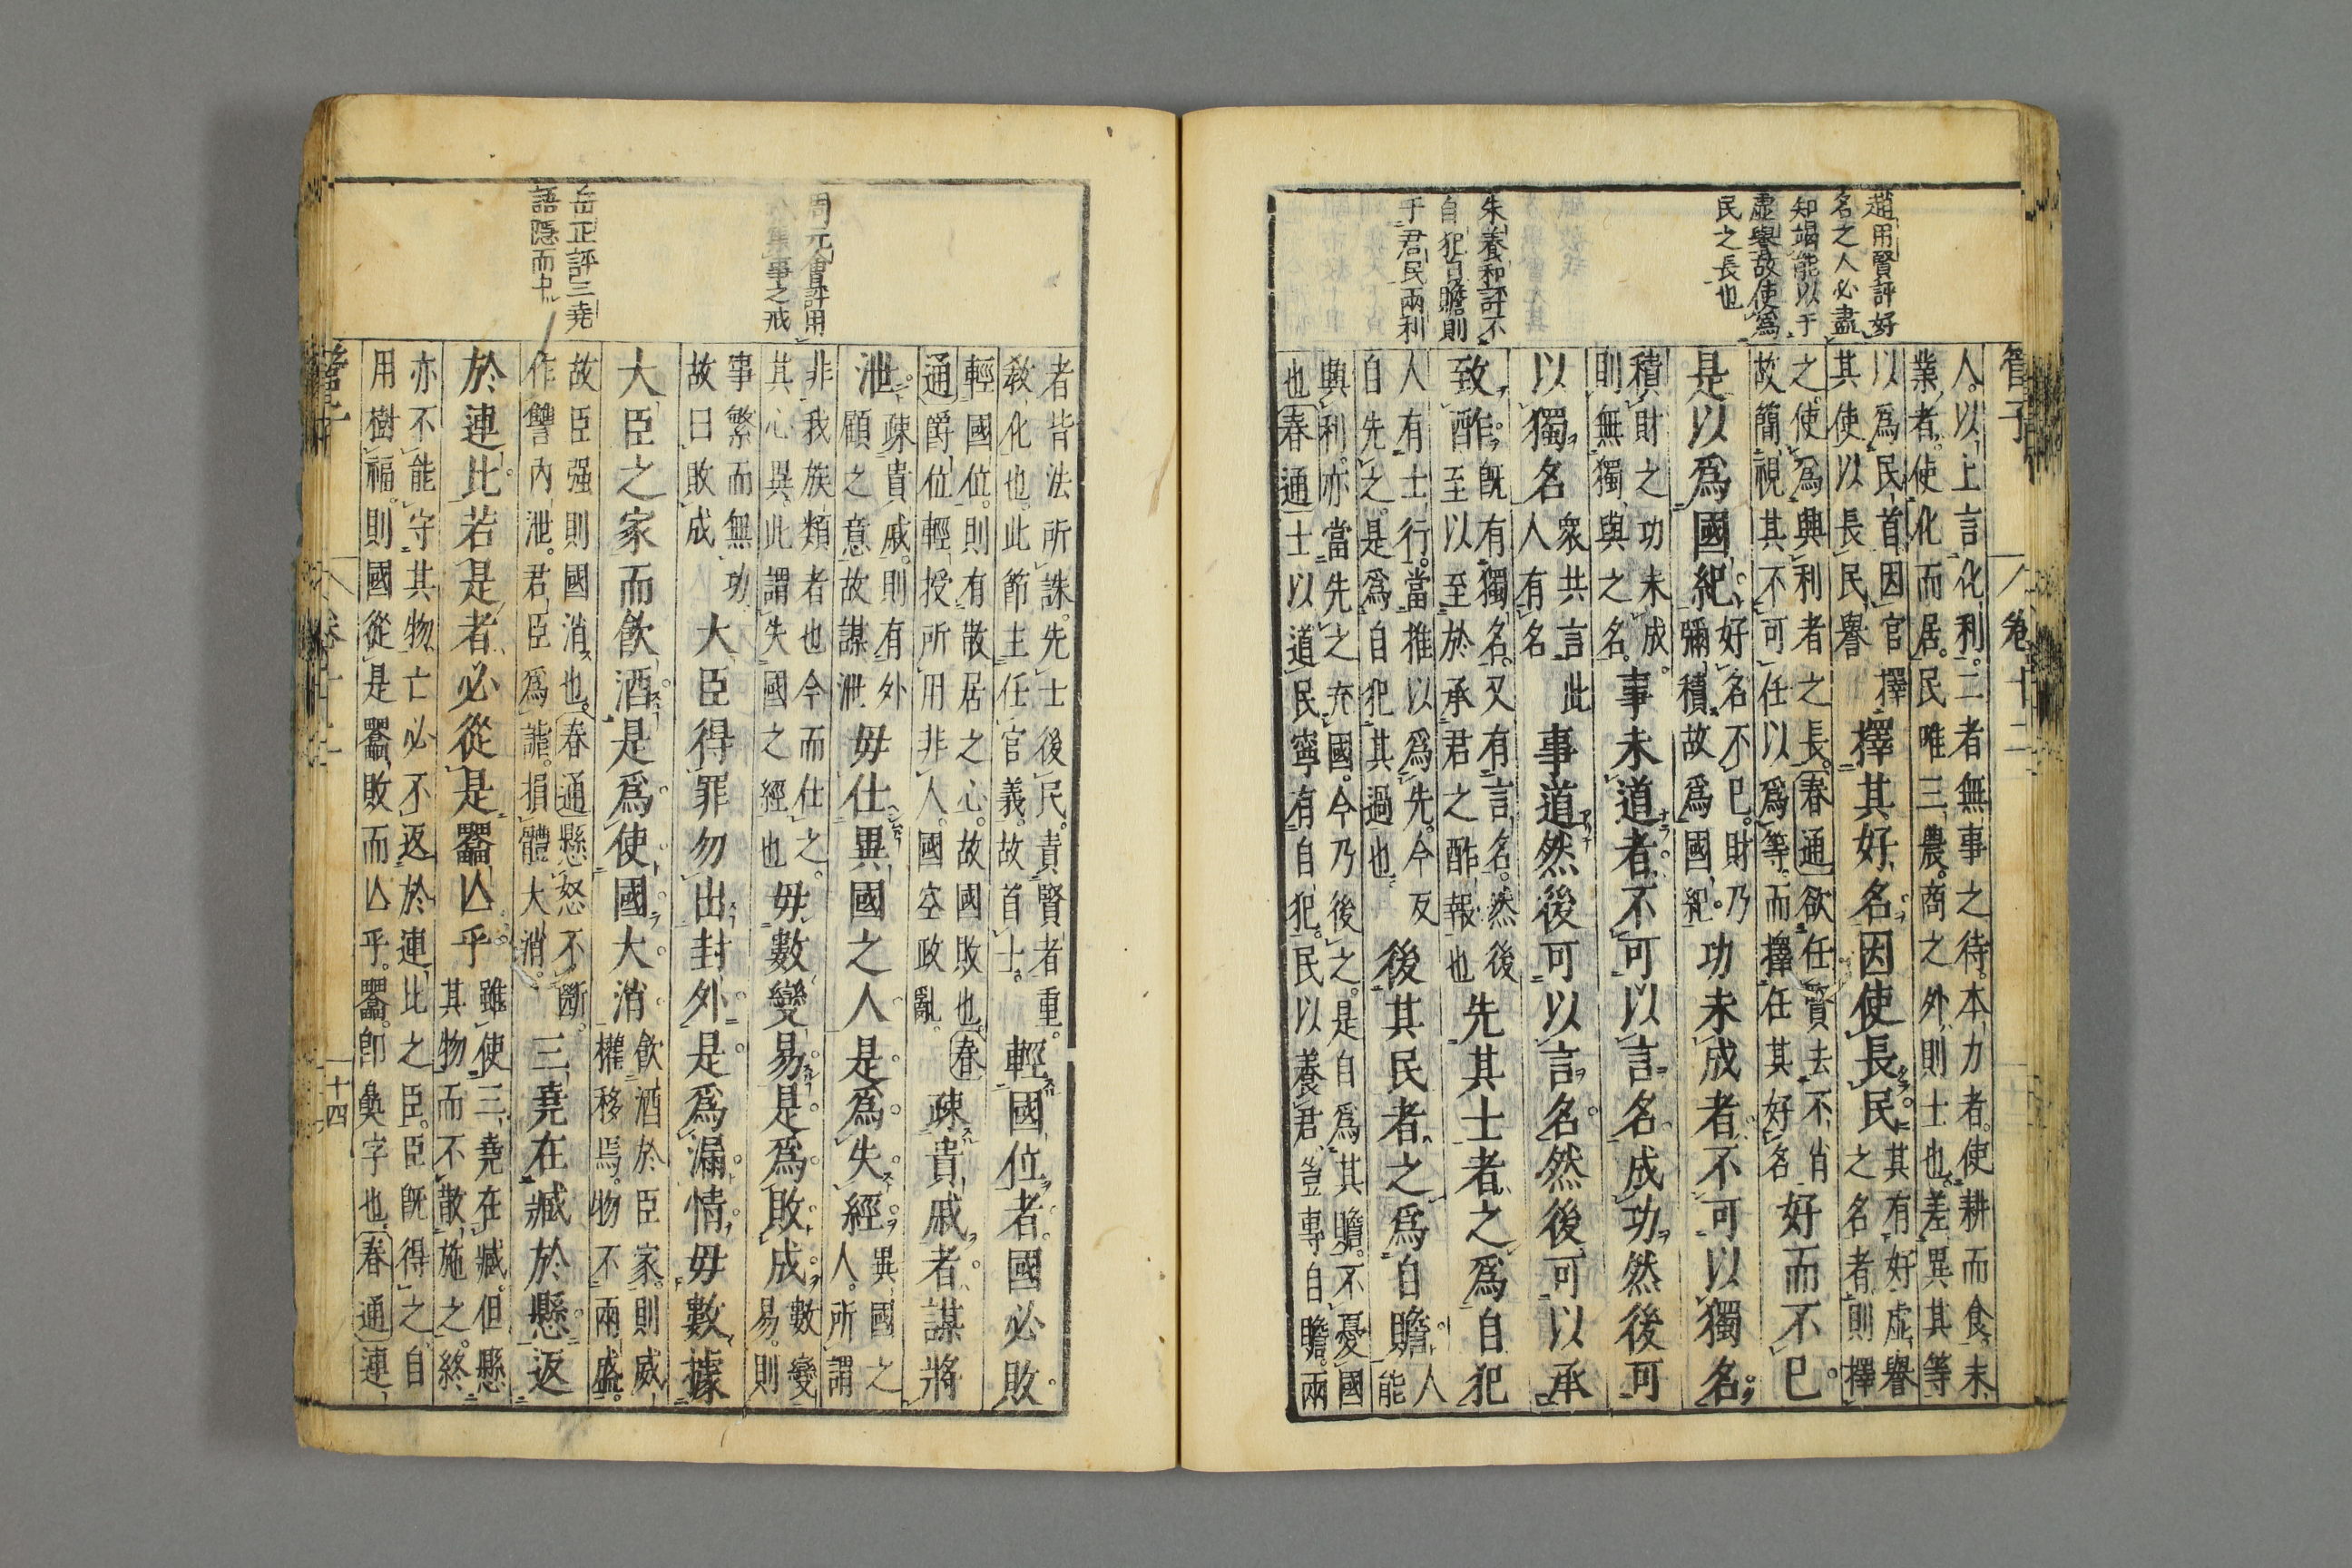 管子
卷十二
趙用賢評好
名之人必盡
知竭能以于
虛譽故使爲
民之長也
朱養和評不
自犯自贍則
于君民兩利
人以上言化利二者無事之待本力者使耕而食末
業者使化而居民唯三農商之外則士也差異其等
以爲民首因官擇
其使以長民譽
擇其好名因使長民
其有好虛譽
之名者則擇
之使爲興利者之長春通欲任賞去不肖
故簡視其不可任以爲等而擇任其好名
好而不已
是以爲國紀
好名不已財乃
彌積故爲國紀
功未成者不可以獨名
積財之功未成
則無獨與之名
事未道者不可以言名成功然後可
以獨名
衆共言此
人有名
事道然後可以言名然後可以承
致酢
旣有獨名又有言名然後
至以至於承君之酢報也
先其士者之爲自犯
人有士行當推以爲先今反
自先之是爲自犯其過也
後其民者之爲自贍
人
能
興利亦當先之充國今乃後之是自爲其贍不憂國
也春通士以道民寧有自犯民以養君豈專自贍兩
周元會評用
事之戒
岳正評三堯
語隱而中
者皆法所誅先士後民責賢者重
敎化也此節主任官義故首士
輕國位者國必敗
輕國位則有散居之心故國敗也春
通爵位輕授所用非人國空政亂
疎貴戚者謀將
泄
疎貴戚則有外
顧之意故謀泄
毋仕異國之人是爲失經
異國之
人所謂
非我族類者也今而仕之
其心異此謂失國之經也
毋數變易是爲敗成
數變
易則
事繁而無功
故曰敗成
大臣得罪勿出封外是爲漏情毋數據
大臣之家而飮酒是爲使國大消
飮酒於臣家則威
權移焉物不兩盛
故臣强則國消也春通懸怒不斷
作讐內泄君臣爲讎損體大消
三堯在臧於懸返
於連比若是者必從是㽮亾乎
雖使三堯在臧但懸
其物而不散施之終
亦不能守其物亡必不返於連比之臣臣旣得之自
用樹福則國從是㽮敗而亾乎㽮卽奐字也春通連
十四